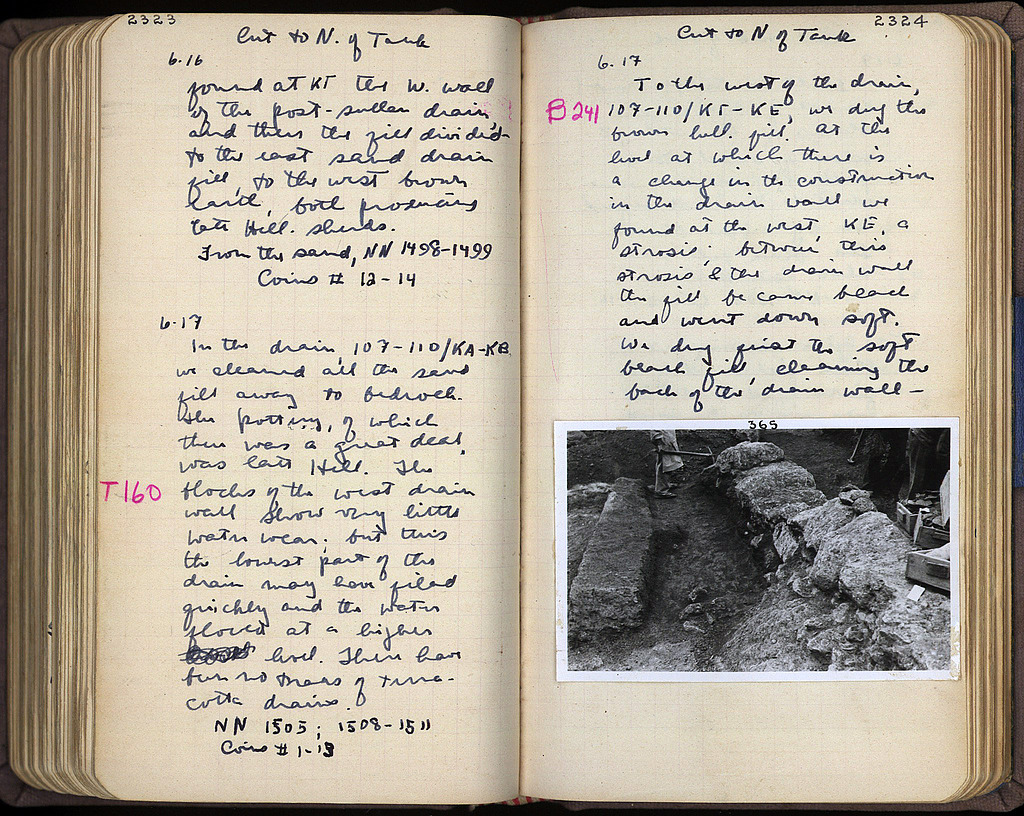 2323
Cut to N. of Tank
6.16
found at KΓ the W. wall
of the post-sullan drain,
and then the fill divided-
to the east sand drain
fill, to the west brown
earth, both producing
late Hell. sherds.
From the sand, NN 1498-1499
Coins # 12-14
6.17
In the drain, 107-110/KA-KB
we cleaned all the sand
fill away to bedrock.
The pottery, of which
there was a great deal,
was late Hell. The
T160
blocks of the west drain
wall show very little
water wear; but this
the lowest part of the
drain may have filled
quickly and the water
flowed at a higher
level. There have
been no traces of terra-
cotta drains.
NN 1505; 1508-1511
Coins # 1-13
2324
Cut to N of Tank
6.17
To the west of the drain,
B241
107-110/KΓ-KE, we dug the
brown hell. fill. At the
level at which there is
a change in the construction
in the drain wall we
found at the west, KE, a
strosis; between this
strosis & the drain wall
the fill became black
and went down soft.
We dug first the soft
black fill, cleaning the
back of the drain wall-
365